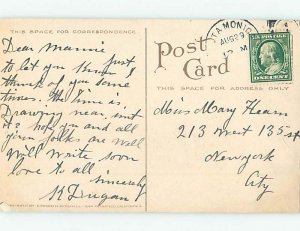 THIS SPACE FOR CORRESPONDENCE
Dear Mamie
Just to let you know I
think of you some
times. the time is
Drawing near, isnt
it? hope you and all
your folks are well
Will write soon
love to all
Sincerely
K Dugan
Post
Card
THIS SPACE FOR ADDRESS ONLY
TA MONIC
AUG 29
M
U.S. POSTAGE
ONE CENT
Miss Mary Hearn
213 West 135 st
New York
City